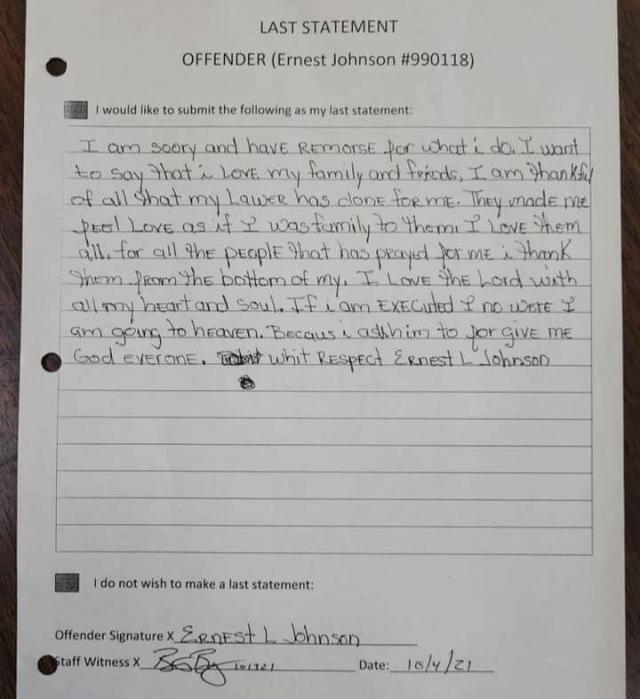 LAST STATEMENT
OFFENDER (Ernest Johnson #990118)
I would like to submit the following as my last statement:
I am soory and have REMORSE for what i do. I want
to say that i LOVE my family and friends, I am thankful
of all that my Lawer has done for me. They made me
feel Love as if I was family to them. I LOVE them
all. for all the people that has prayed for me i thank
them from the bottom of my. I Love the Lord with
all my heart and soul. If i am EXECuted I no wERE I
am going to heaven. Becaus i ask him to forgive ME
God everone. whit RESPECT ERNEST L Johnson
I do not wish to make a last statement:
Offender Signature X ERNEST L Johnson
Staff Witness X
Date: 10/4/21